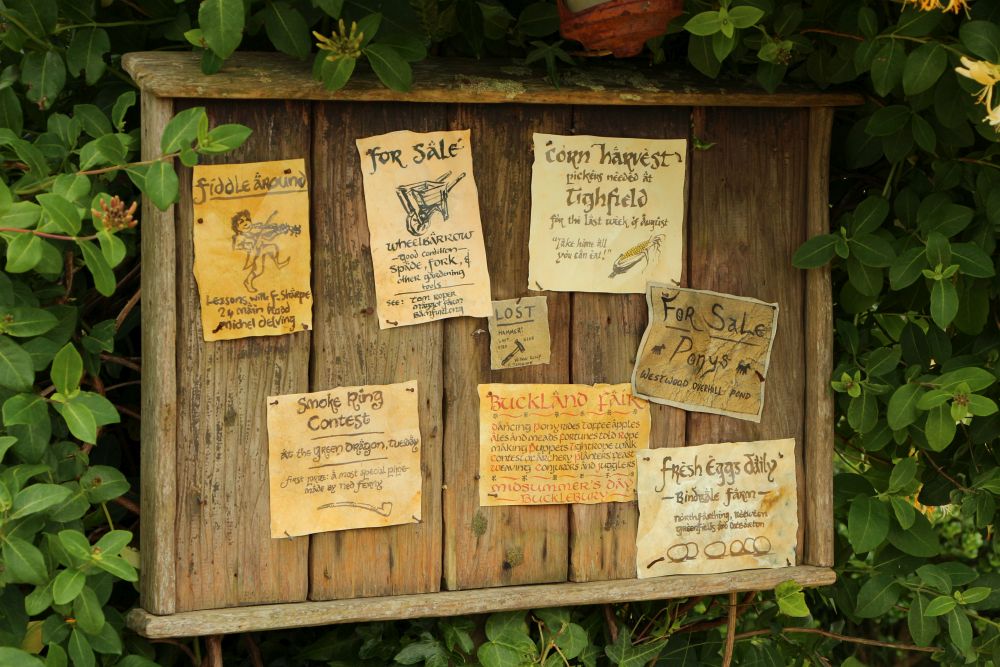 Fiddle Around
Lessons with F. Sharpe
24 Main Road
Michel Delving
For Sale
Wheelbarrow
-good condition-
Spade, Fork, &
other gardening
tools
See: Tom Roper
Maggot Farm
Corn Harvest
pickers needed at
Tighfield
for the last week of August
"Take home all
you can eat!"
LOST
HAMMER!
For Sale
Ponys
Westwood Overhill Pond
Smoke Ring
Contest
at the Green Dragon, Tuesday
First prize: a most special pipe
made by Ned Ferny
Buckland Fair
Dancing Pony rides toffee apples
ales and meads fortunes told rope
making puppets tightrope walk
contest of archery planters feast
weaving conjurors and jugglers
Midsummer's Day
Bucklebury
Fresh Eggs Daily
-Bindbale Farm-
Northfarthing, between
Greenfields and Oatbarton